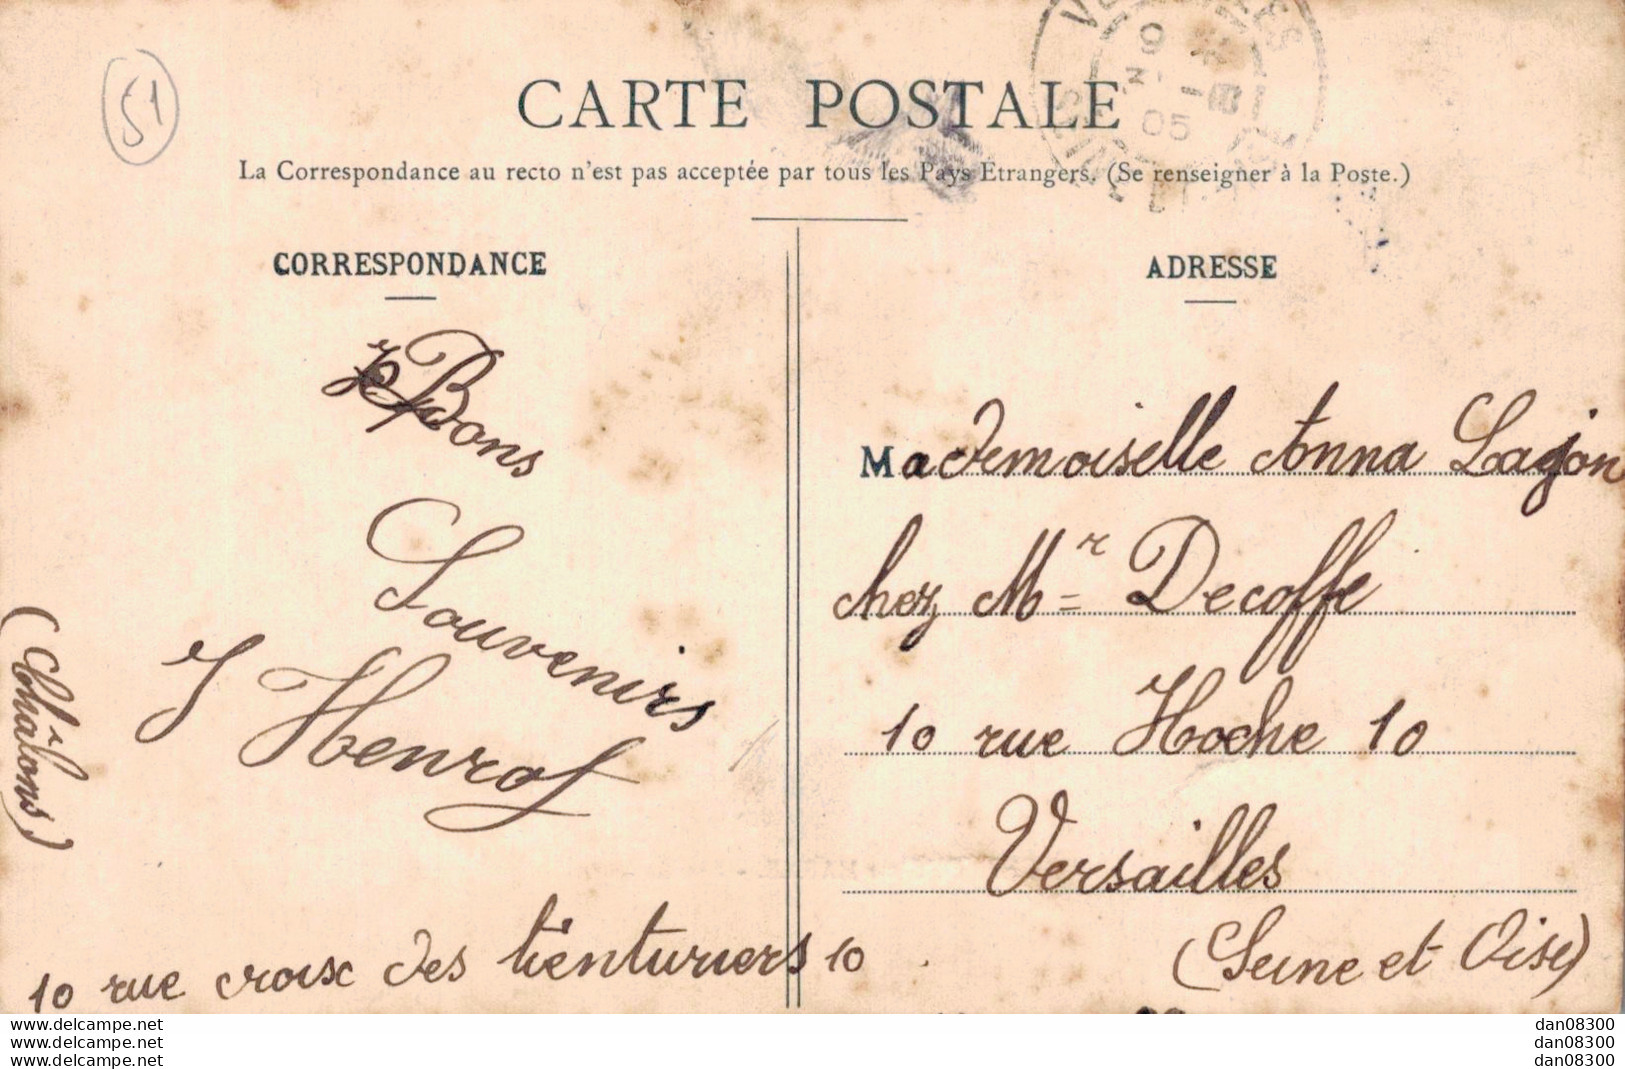 51
CARTE POSTALE
La Correspondance au recto n'est pas acceptée par tous les Pays Etrangers. (Se renseigner à la Poste.)
CORRESPONDANCE
Bons
Souvenirs
J Henrof
(Châlons)
10 rue croix des tienturiers 10
ADRESSE
Mademoiselle Anna Lajon
chez Mr = Decoffe
10 rue Hoche 10
Versailles
(Seine et Oise)
9
05
www.delcampe.net
www.delcampe.net
www.delcampe.net
dan08300
dan08300
dan08300